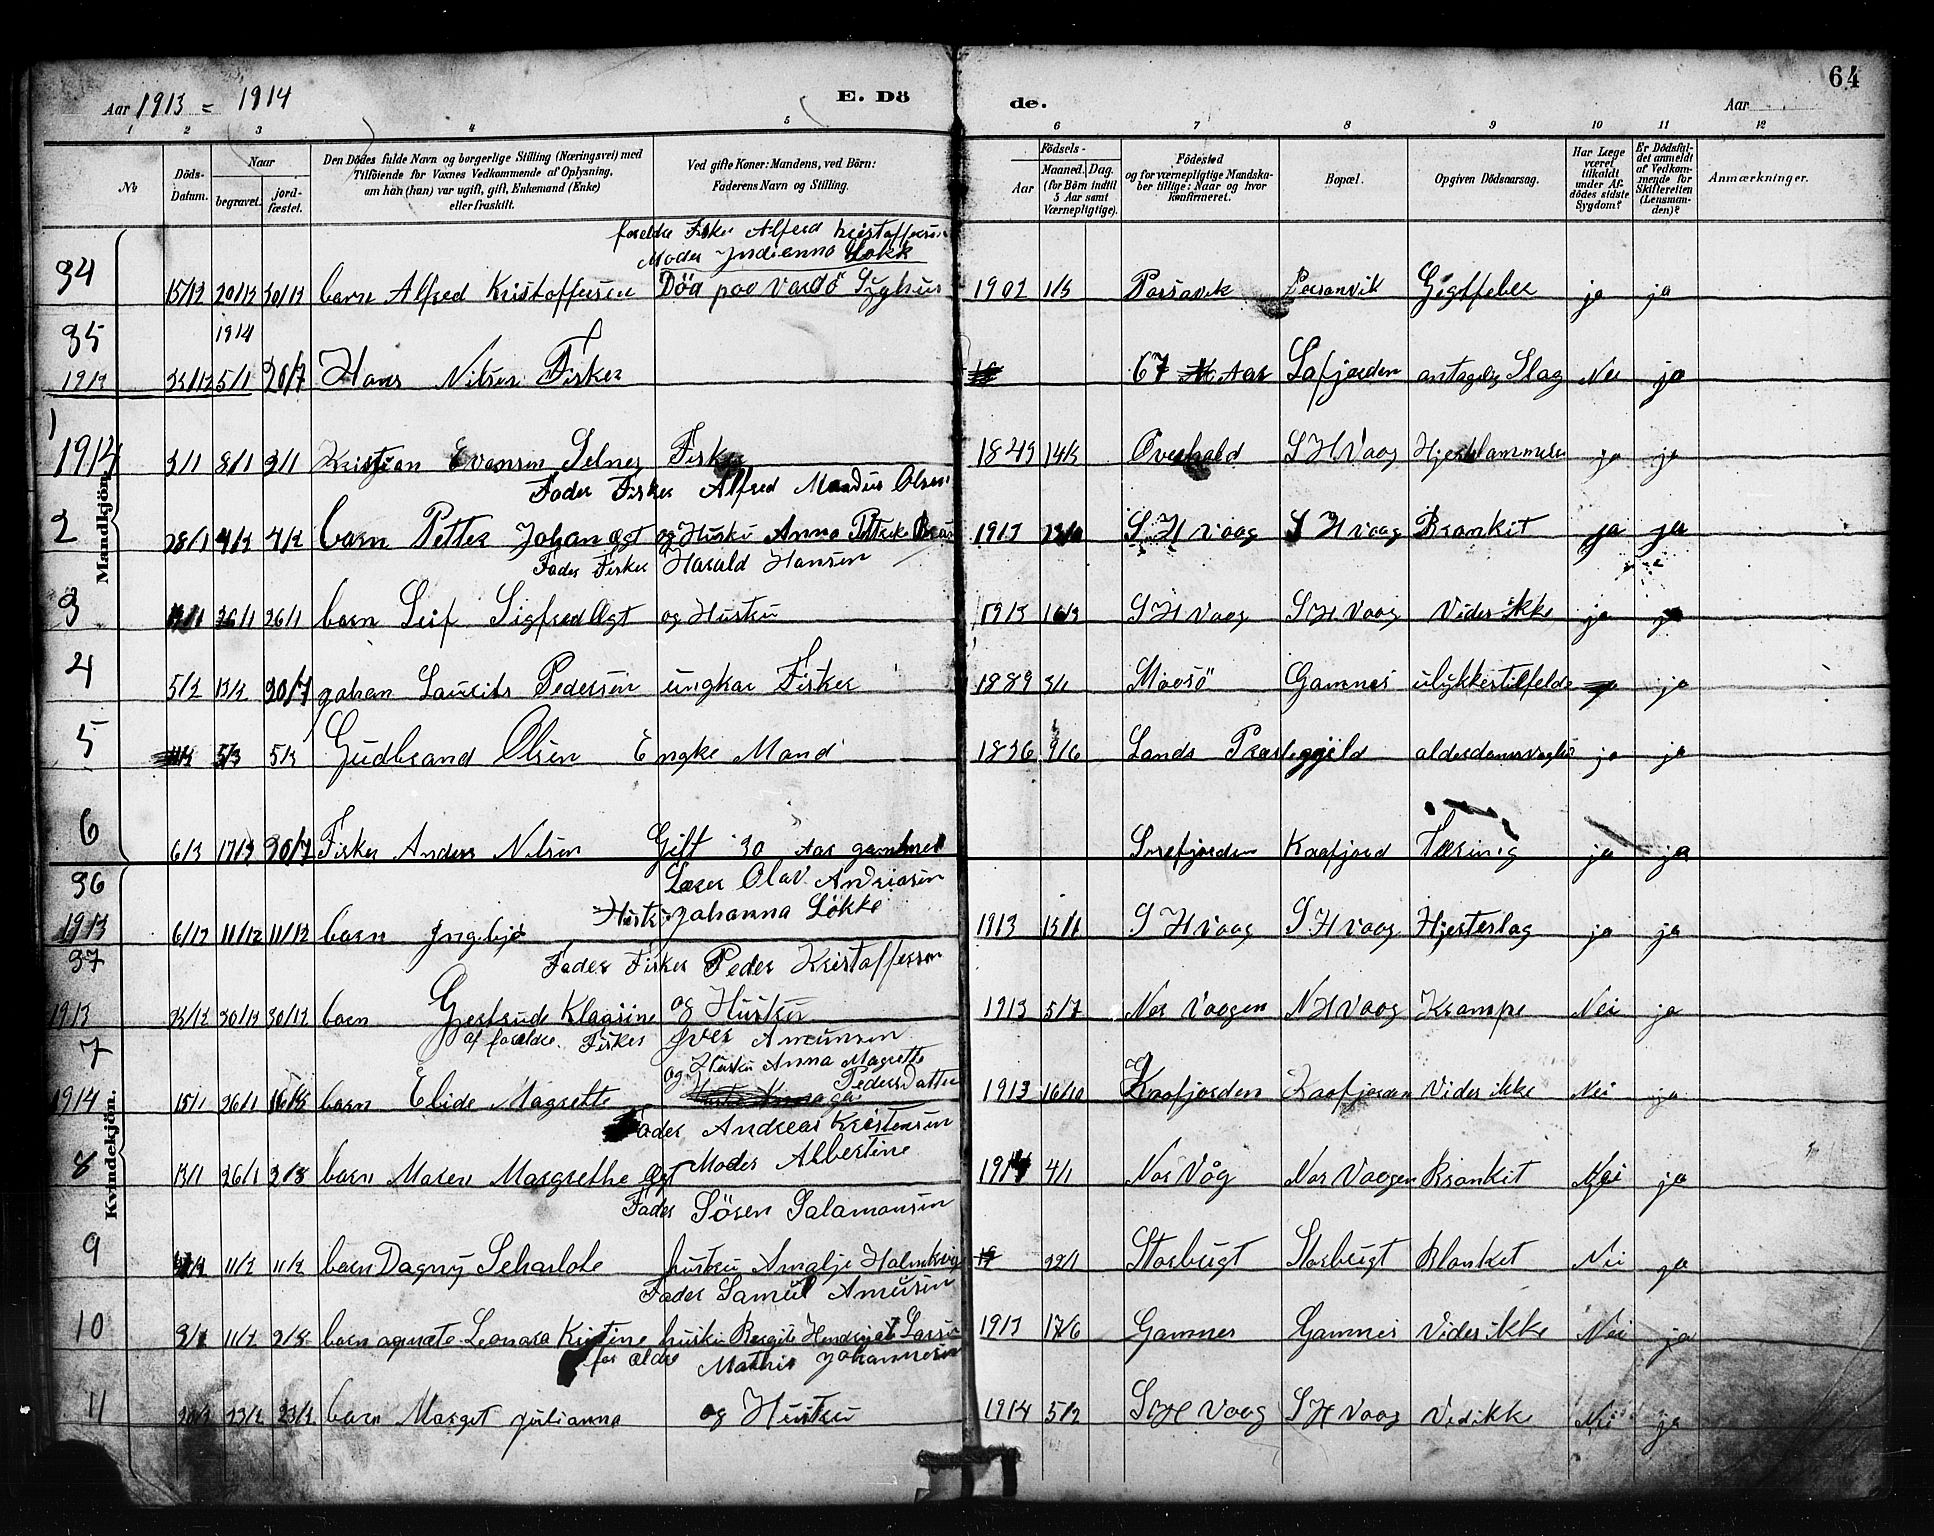 64
Aar 1913 = 1914 E. Dö de. Aar
1 2 3 4 5 6 7 8 9 10 11 12
No
Döds-Datum.
Naar
begravet.
jord-fæstet.
Den Dödes fulde Navn og borgerlige Stilling (Næringsvei) med
Tilföiende for Voxnes Vedkommende af Oplysning,
om hån (han) var ugift, gift, Enkemand (Enke)
eller fraskilt.
Ved gifte Koner: Mandens, ved Börn:
Faderens Navn og Stilling.
Födsels-
Aar
Maaned. Dag.
(for Börn indtil
5 Aar samt
Værnepligtige).
Födested
og for værnepligtige Mandska-
ber tillige: Naar og hvor
konfirmeret.
Bopæl.
Opgiven Dödsaarsag.
Har Læge
været
tilkaldt
under Af-
dödes sidste
Sygdom?
Er Dödsfal-
det anmeldt
af Vedkom-
mende for
Skifteretten
(Lensman-
den)?
Anmærkninger.
Mandkjön.
forældre Fisker Alfred Kristoffersen
Moder Indianna Hokk
34 15/12 20/12 30/12 barn Alfred Kristoffersen Död paa Vardö Syghus 1902 1/5 Porsavik Porsanvik Gigtfeber ja ja
35
1914
5/1 20/7 Hans Nilsen Fisker 67 Aar Lafjorden antagelig Slag Nei ja
1
1914 3/1 8/1 Kristian Evansen Selnes Fisker 1849 Overhald S H Vaag ja ja
Fader Fisker Alfred Mandus Olsen
2 28/1 4/2 4/2 barn Petter Johan Ægt og Hustru Anna Petrike 1913 S H Vaag S H Vaag Bronkit ja ja
Fader Fisker Harald Hansen
3 26/1 26/1 barn Leif Sigfred Ægt og Hustru 1913 S H Vaag S H Vaag Vides ikke ja ja
4 5/2 20/7 Johan Laurits Pedersen ungkar Fisker 1889 Maasö Gamnes ulykkestilfelde ja
5 5/3 5/3 Gudbrand Olsen Enke Mand 1836 9/6 Lands Præsteggjeld ja ja
6 6/3 17/3 30/7 Fisker Anders Nilsen Gift 30 Aar gammel Snefjorden Kaafjord Tæring ja ja
Kvindekjön.
36 Olav Andriasen
1913 6/12 11/12 11/12 barn Ingebjø Hustru Johanna Løkke 1913 S H Vaag S H Vaag Hjerteslag ja ja
37 Fader Fisker Peder Kristoffersen
1913 30/12 30/12 barn Gertrude Klagrine og Hustru 1913 5/7 Nor Vaagen N H Vaag Krampe Nei ja
7 af forældre Fisker Iver Amunsen
og Hustru Anna Magrette
Pedersdatter
1914 15/1 26/1 barn Elide Magrette 1913 16/10 Kaafjorden Kaafjorden Vides ikke Nei ja
Fader Andreas Kristensen
8 13/1 26/1 2/3 barn Maren Margrethe Ægt Moder Albertine 1914 4/1 Nor Våg Nor Vaagen Bronkit Nei ja
Fader Sören Salamonsen
9 11/2 11/2 barn Dagny Scharlote hustru Amalje 22/1 Storbugt Storbugt Blonket Nei ja
Fader Samuel Amunsen
10 11/2 2/3 barn agnæte Leonara Kristine hustru 1913 17/6 Gamnes Gamnes Vides ikke Nei ja
for ældre Mathis Johannesen
11 23/2 23/2 barn Marget Julianna og Hustru 1914 5/2 S H Vaag S H Vaag Ved ikke Nei ja